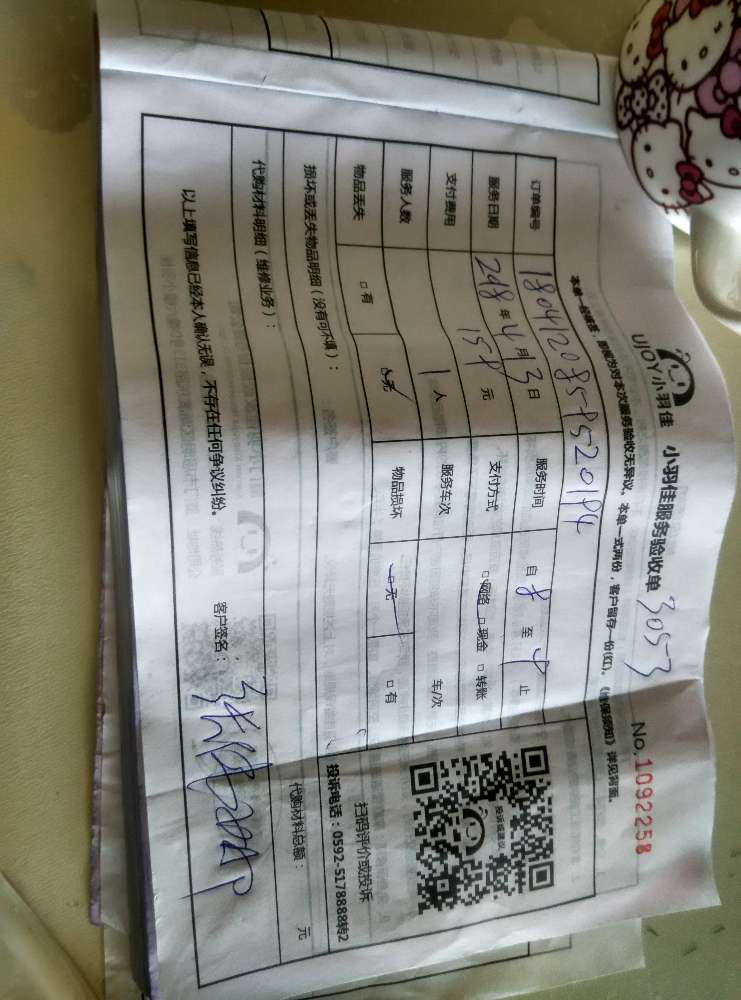 UJOY小羽佳 小羽佳服务验收单 3053 No.1092258
本单一经填签,即视为对本次服务验收无异议。本单一式两份,客户留存一份(红)。《加保须知》详见背面。
订单编号
服务日期 年4月13日 服务时间 自8至 止
支付费用 元 支付方式 □网络 □现金 □转账
服务人数 1人 服务车次 车/次
物品丢失 □有 □无 物品损坏 □无 □有
投诉或建议
扫码评价或投诉
投诉电话:0592-5178888转2
损坏或丢失物品明细(没有可不填):
代购材料明细(维修业务): 代购材料总额: 元
以上填写信息已经本人确认无误,不存在任何争议纠纷。 客户签名: